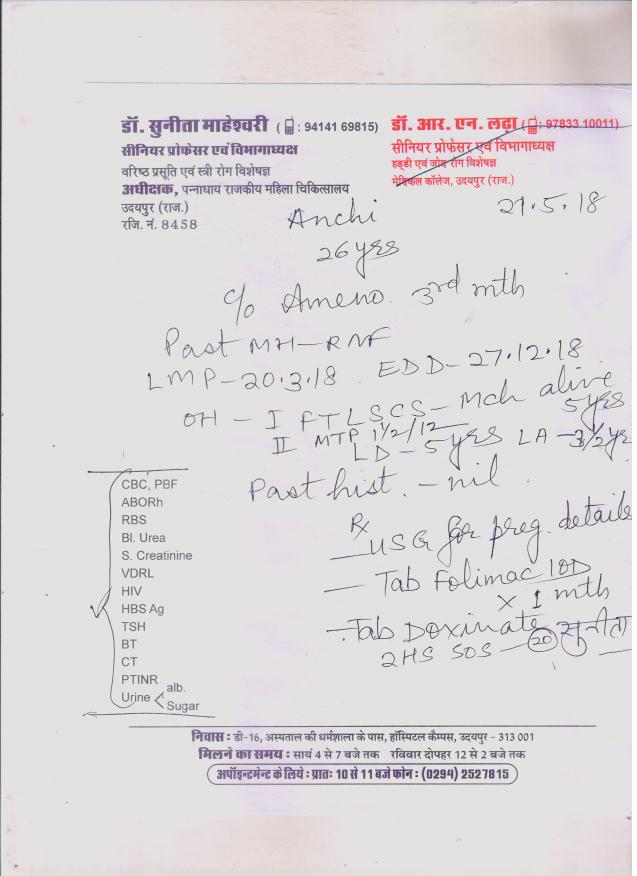 डॉ. सुनीता माहेश्वरी ( : 94141 69815)
सीनियर प्रोफेसर एवं विभागाध्यक्ष
वरिष्ठ प्रसूति एवं स्त्री रोग विशेषज्ञ
अधीक्षक, पन्नाधाय राजकीय महिला चिकित्सालय
उदयपुर (राज.)
रजि. नं. 8458
डॉ. आर. एन. लढ़ा ( : 97833 10011)
सीनियर प्रोफेसर एवं विभागाध्यक्ष
हड्डी एवं जोड़ रोग विशेषज्ञ
मेडिकल कॉलेज, उदयपुर (राज.)
21.5.18
Anchi
26 yrs
c/o Ameno. 3rd mth
Past MH-RNF
LMP-20.3.18 EDD-27.12.18
OH - I FTLSCS - Mch alive
5 yrs
II MTP 1 1/2/12
LD - 5 yrs LA - 3 1/2 yr
Past hist. - nil.
CBC, PBF
ABORh
RBS
Bl. Urea
S. Creatinine
VDRL
HIV
HBS Ag
TSH
BT
CT
PTINR
Urine alb.
Sugar
Rx
- USG for preg. details
- Tab Folimac 1OD
x 1 mth
- Tab Doxinate सुनीता
2HS SOS - 20
निवास : डी-16, अस्पताल की धर्मशाला के पास, हॉस्पिटल कैम्पस, उदयपुर - 313 001
मिलने का समय : सायं 4 से 7 बजे तक रविवार दोपहर 12 से 2 बजे तक
अपॉइन्टमेन्ट के लिये : प्रातः 10 से 11 बजे फोन : (0294) 2527815